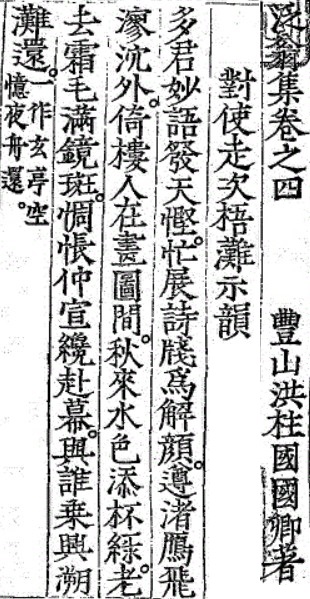 泛翁集卷之四　豐山洪柱國國卿著
對使走次梧灘示韻
多君妙語發天慳。忙展詩牋爲解顔。遵渚鴈飛
寥沈外。倚樓人在畫圖間。秋來水色添杯綠。老
去霜毛滿鏡斑。惆悵仲宣纔赴幕。與誰乗興溯
灘還。一作玄亭空
憶夜舟還。